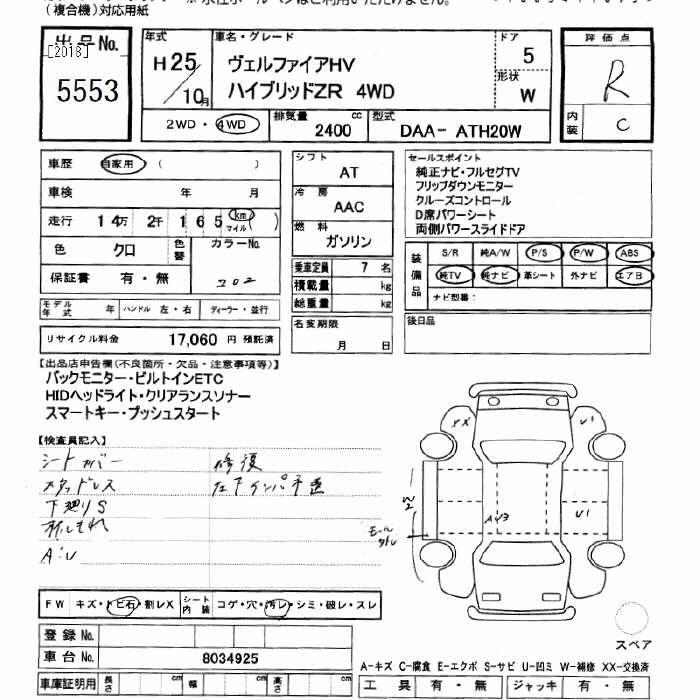 (複合機)対応用紙
出品No.
[2018]
5553
年式
H25/10月
車名・グレード
ヴェルファイアHV
ハイブリッドZR 4WD
ドア
5
形状
W
評価点
R
内装
C
2WD・4WD
排気量
2400 cc
型式
DAA- ATH20W
車歴 自家用 ( )
車検 年 月
走行 14万 2千 165 km マイル ( )
色 クロ
色替
カラーNo.
202
保証書 有・無
モデル年式 年
ハンドル 左・右
ディーラー・並行
リサイクル料金 17,060 円 預託済
シフト
AT
冷房
AAC
燃料
ガソリン
乗車定員 7 名
積載量 kg
総重量 kg
名変期限
月 日
セールスポイント
純正ナビ・フルセグTV
フリップダウンモニター
クルーズコントロール
D席パワーシート
両側パワースライドドア
装備品
S/R 純A/W P/S P/W ABS
純TV 純ナビ 革シート 外ナビ エアB
ナビ型番:
後日品
【出品店申告欄(不良箇所・欠品・注意事項等)】
バックモニター・ビルトインETC
HIDヘッドライト・クリアランスソナー
スマートキー・プッシュスタート
【検査員記入】
シートカバー
修復
スタッドレス
下廻りS
A:U
XX
U1
U1
W2
FW キズ・トビ石・割レX
シート内装 コゲ・穴・汚レ・シミ・破レ・スレ
登録No.
車台No. 8034925
車庫証明用 長さ cm 幅 cm 高さ cm
スペア
A-キズ C-腐食 E-エクボ S-サビ U-凹ミ W-補修 XX-交換済
工具 有・無 ジャッキ 有・無